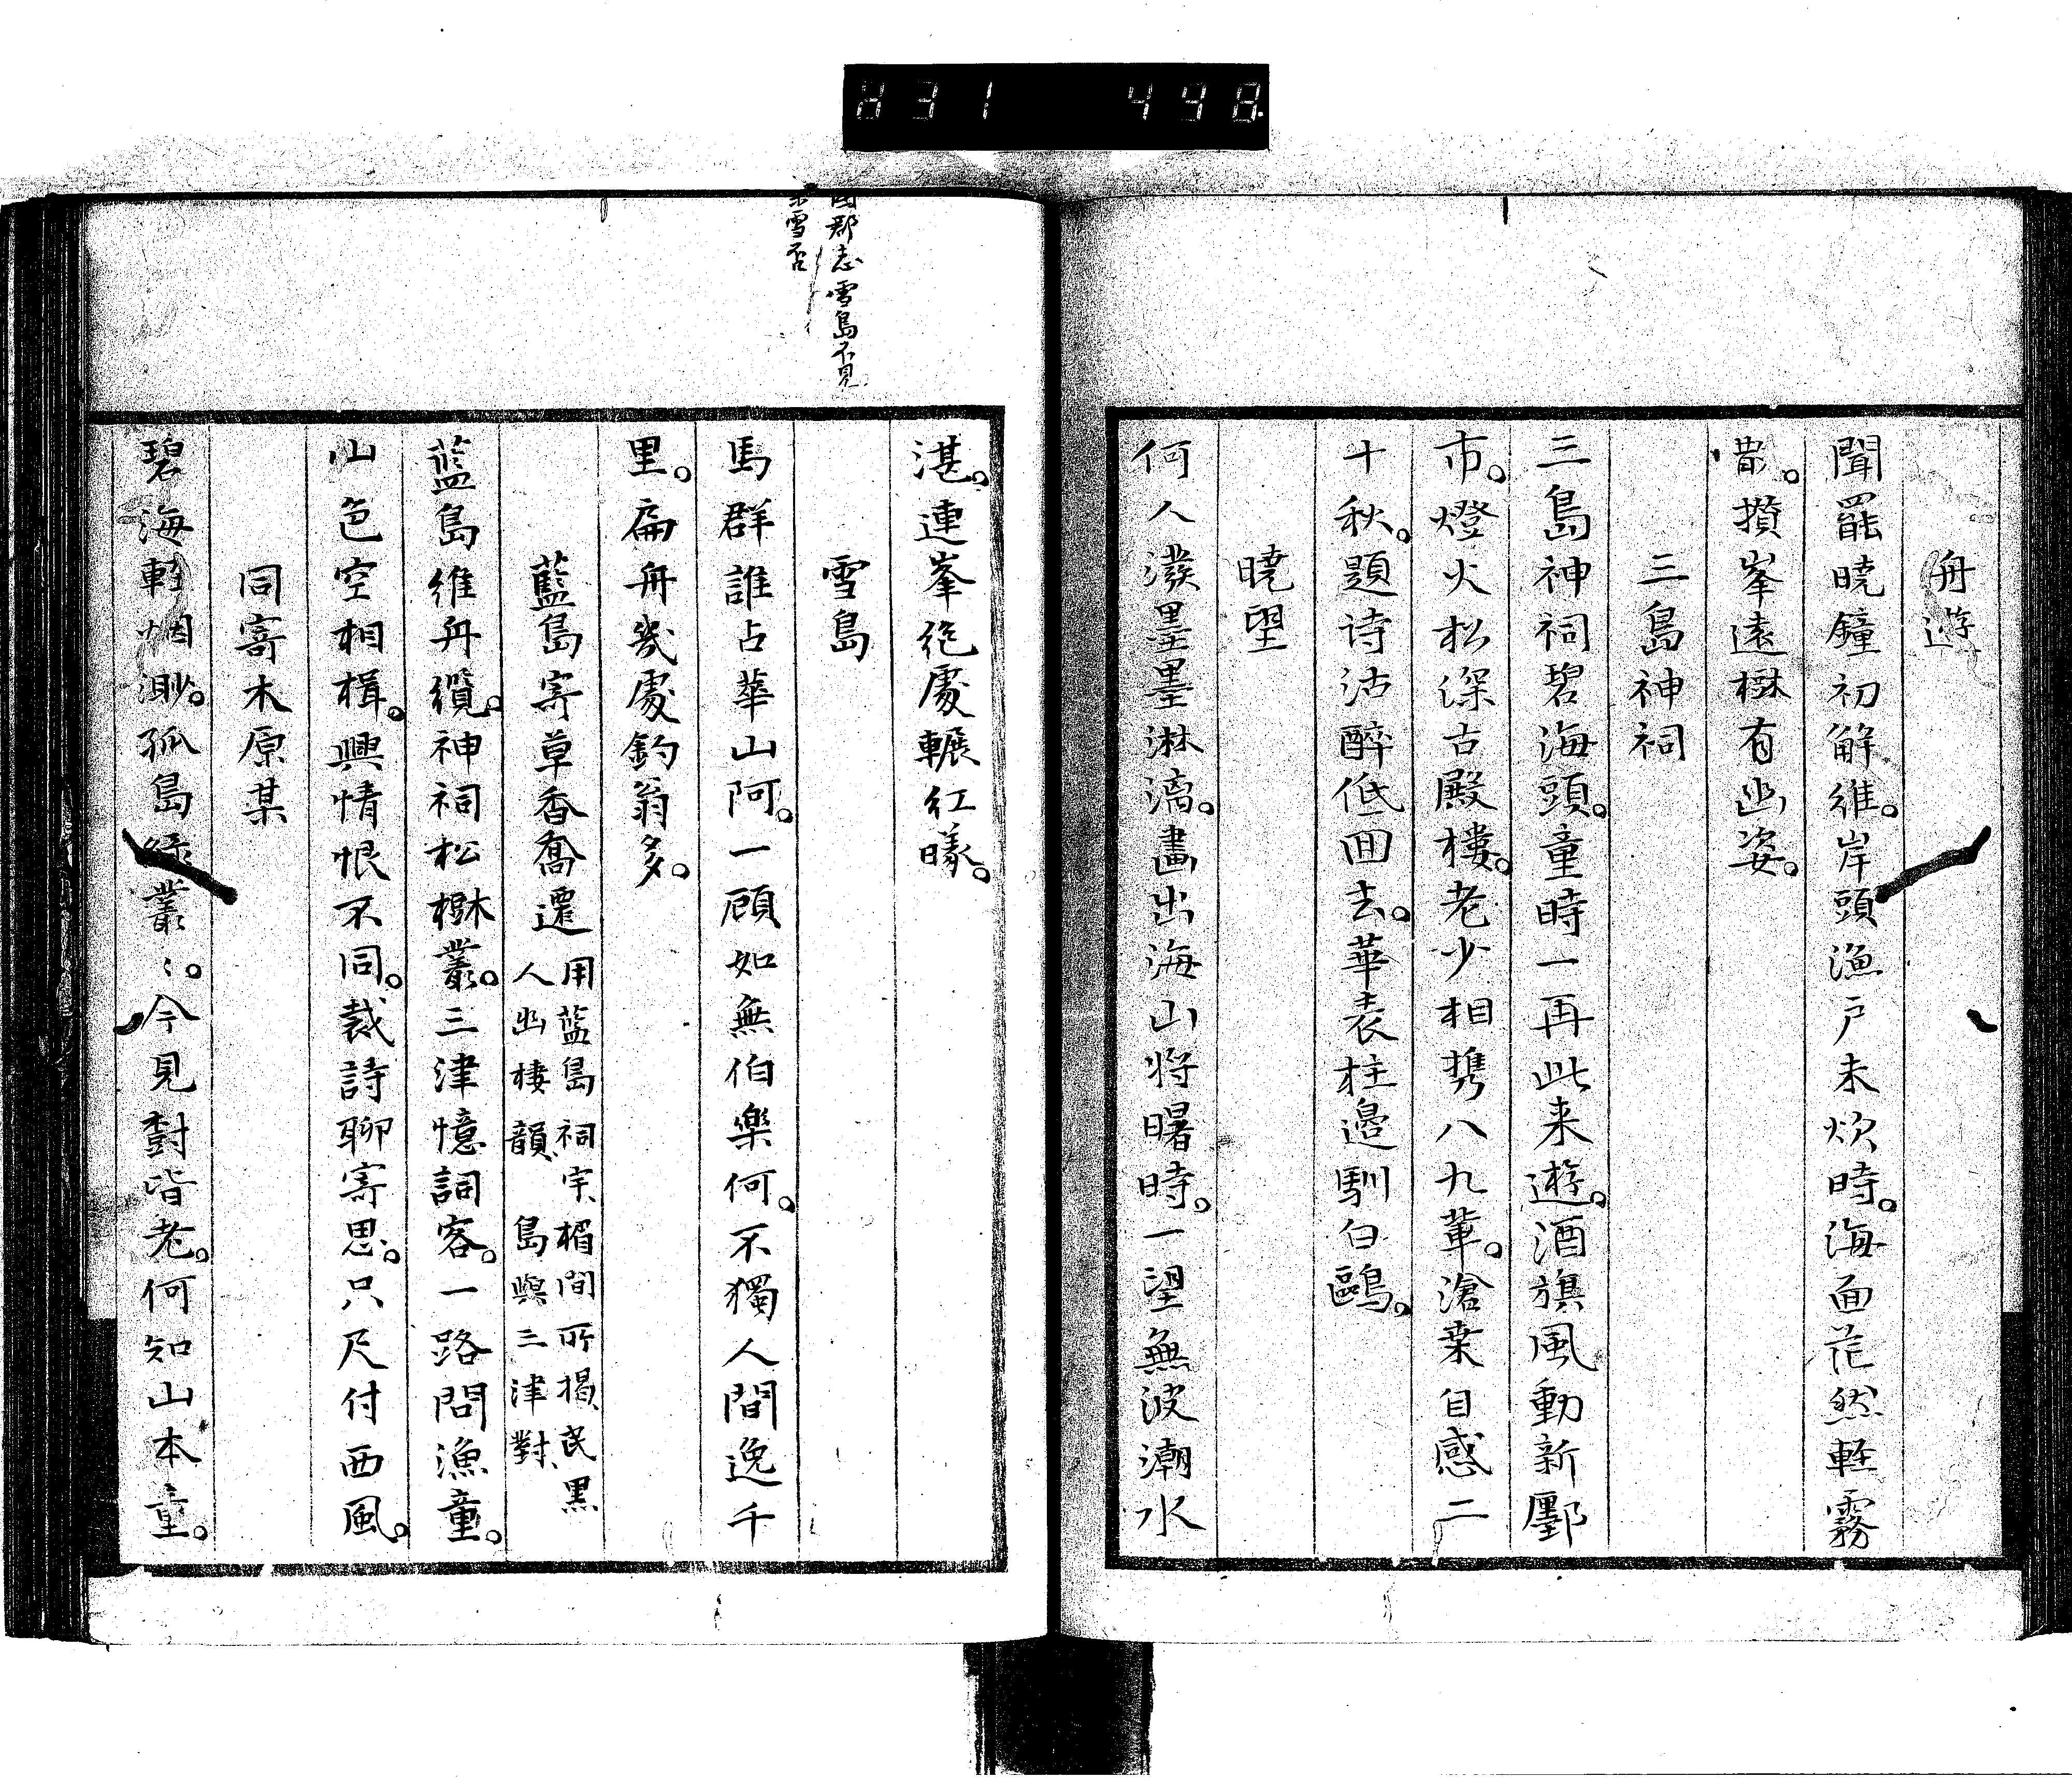 舟遊
聞罷曉鐘初解維。岸頭漁戸未炊時。海面茫然軽霧
散。攅峯遠樹有幽姿。
三島神祠
三島神祠碧海頭。童時一再此来遊。酒旗風動新鄽
市。燈火松深古殿樓。老少相携八九輩。滄桒自感二
十秋。題诗沽醉低回去。華表柱邉馴白鷗。
曉望
何人潑墨墨淋漓。畵出海山将曙時。一望無波潮水
湛。連峯絶處輾紅曦。
雪島
馬群誰占華山阿。一顧如無伯樂何。不獨人間逸千
里。扁舟幾處釣翁多。
藍島寄草香喬遷
用藍島祠宇楣間所掲民黒
人幽棲韻、島與三津對、
藍島維舟纜。神祠松樹叢。三津憶詞客。一路問漁童。
山色空相楫。興情恨不同。裁詩聊寄思。只尺付西風。
同寄木原某
碧海軽烟渺。孤島緑叢〻。今見對皆老。何知山本童。
國郡志雪島不見
雪否
831 498